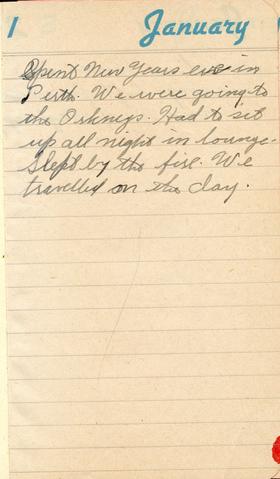 1 January
Spent New Years eve in
Perth. We were going to
the Orkneys. Had to sit
up all night in lounge.
Slept by the fire. We
travelled on the day.